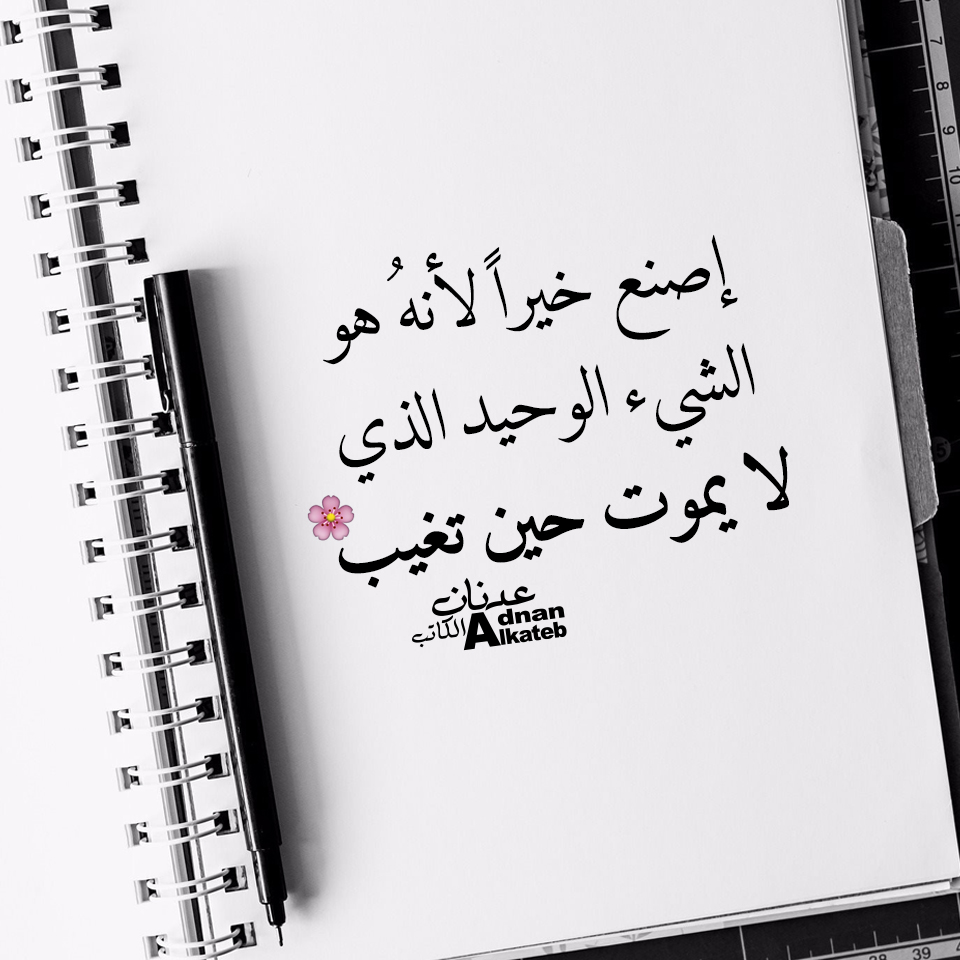 إصنع خيراً لأنهُ هو
الشيء الوحيد الذي
لا يموت حين تغيب🌸
عدنان
الكاتب
Adnan
Alkateb
7
8
9
10
38
39